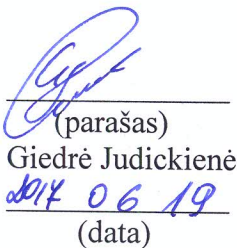 (parašas)
Giedrė Judickienė
2017 06 19
(data)